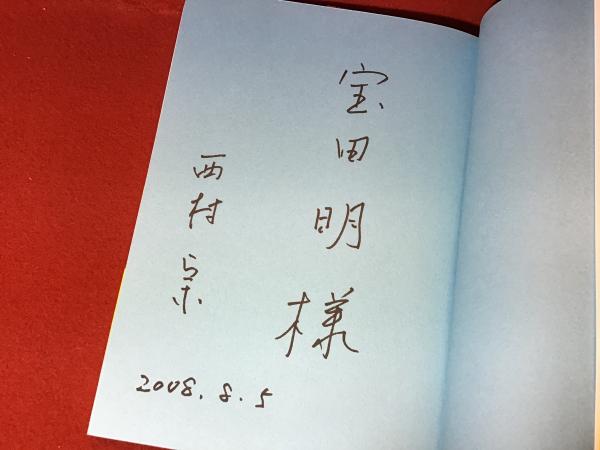 宝田明様
西村
2008.8.5